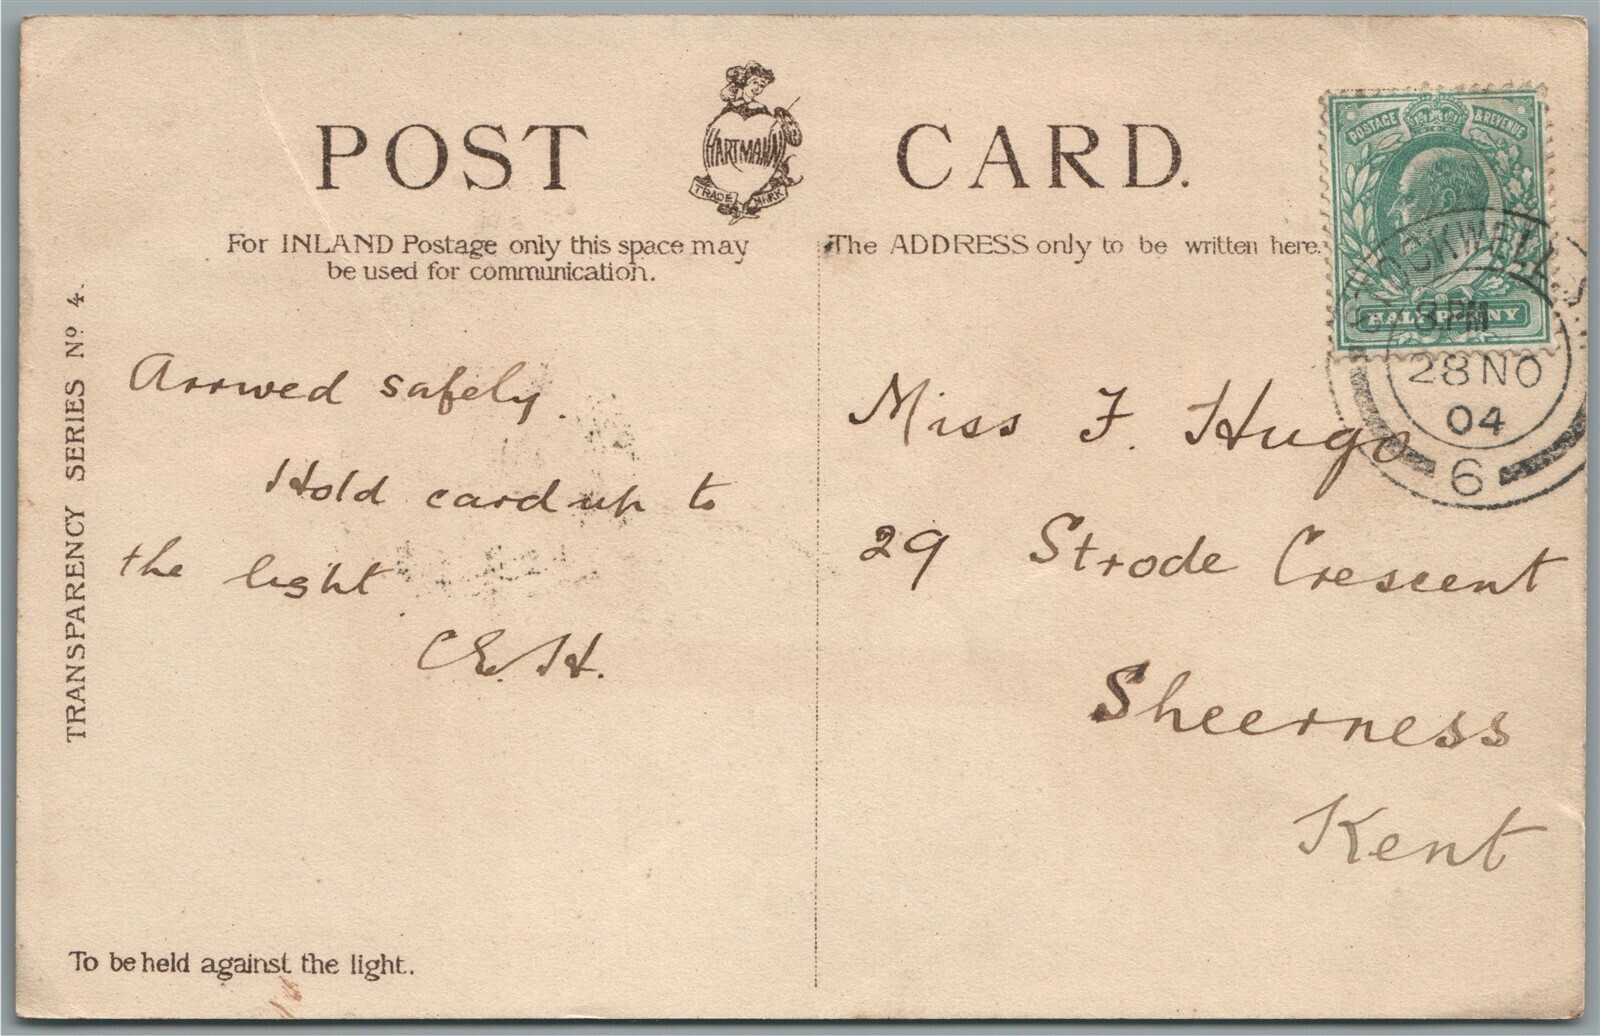 POST CARD.
HARTMANN
TRADE MARK
For INLAND Postage only this space may
be used for communication.
The ADDRESS only to be written here.
POSTAGE & REVENUE
HALF PENNY
STOCKWELL
8 PM
28 NO
04
6
TRANSPARENCY SERIES No 4.
Arrived safely.
Hold card up to
the light
C.E.H.
Miss F. Hugo
29 Strode Crescent
Sheerness
Kent
To be held against the light.